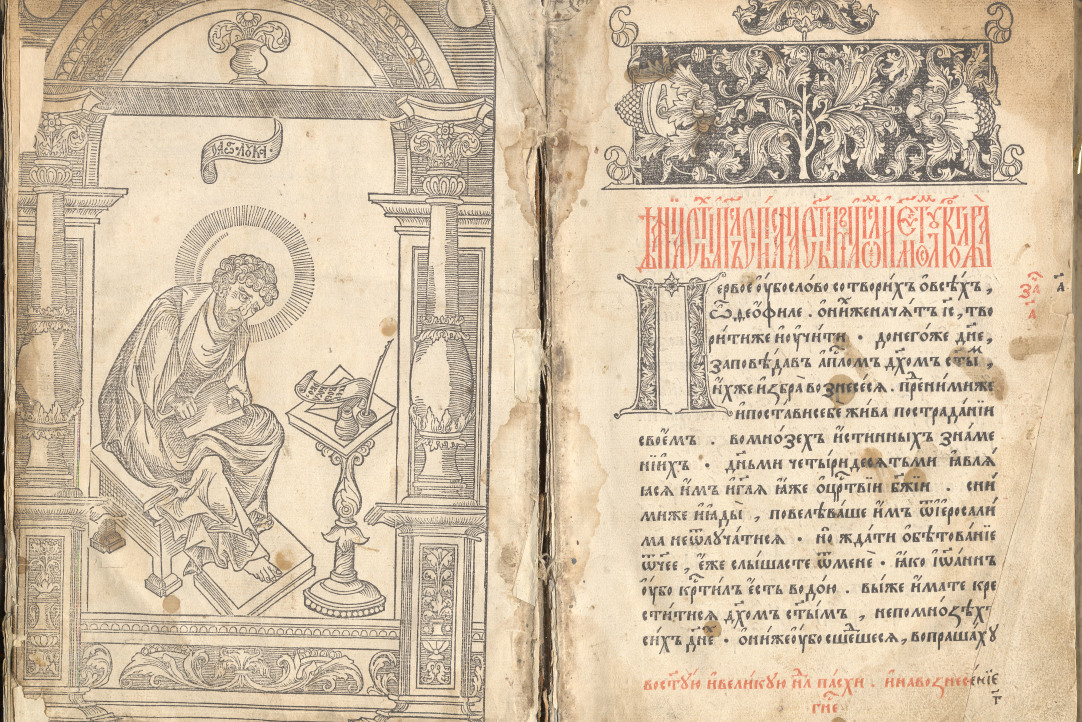 лꙋка
Первое ѹ҆бо слово сотвори́хъ ѡ҆ всѣ́хъ,
ѽ, ѳео́филе. ѡ҆ ни́хже нача́тъ і҆с҃, тво
ри́ти же и҆ ѹ҆чи́ти. до него́же дн҃е,
заповѣ́давъ а҆пⷭ҇ломъ дх҃омъ ст҃ыⷨ,
и҆́хже и҆ꙁбра̀ воꙁнесе́сѧ. преⷣ ни́миже
и҆ поста́ви себѐ жи́ва по страда́нїи
свое́мъ. во мно́зехъ и҆́стинныхъ зна́ме
нїихъ. дн҃ьми четы́ридесѧтьми ꙗ҆влѧ́
ꙗсѧ и҆̀мъ и҆ гл҃ѧ ꙗ҆́же ѡ҆ црⷭ҇твїи бж҃їи. с ни́
миже и҆ ꙗ҆ды̀, повелѣва́ше и҆̀мъ ѿ і҆еросали́
ма не ѿлꙋча́тисѧ. но̀ жда́ти ѡ҆бѣтова́нїе
ѿч҃ее, е҆́же слы́шасте ѿ менѐ. ꙗ҆́ко і҆ѡа́ннъ
ѹ҆́бо крⷭ҇ти́лъ є҆́сть водо́ю. вы́ же и҆́мате кре
сти́тисѧ дх҃омъ ст҃ы́мъ, не по мно́ꙁѣхъ
си́хъ дн҃е. ѡ҆ни́ же ѹ҆́бо сше́дшесѧ, вопраша́хꙋ
в ост҃ꙋ́ю и҆ вели́кꙋю нлⷣю па́схи. и҆ на воꙁнесе́нїе
гн҃е